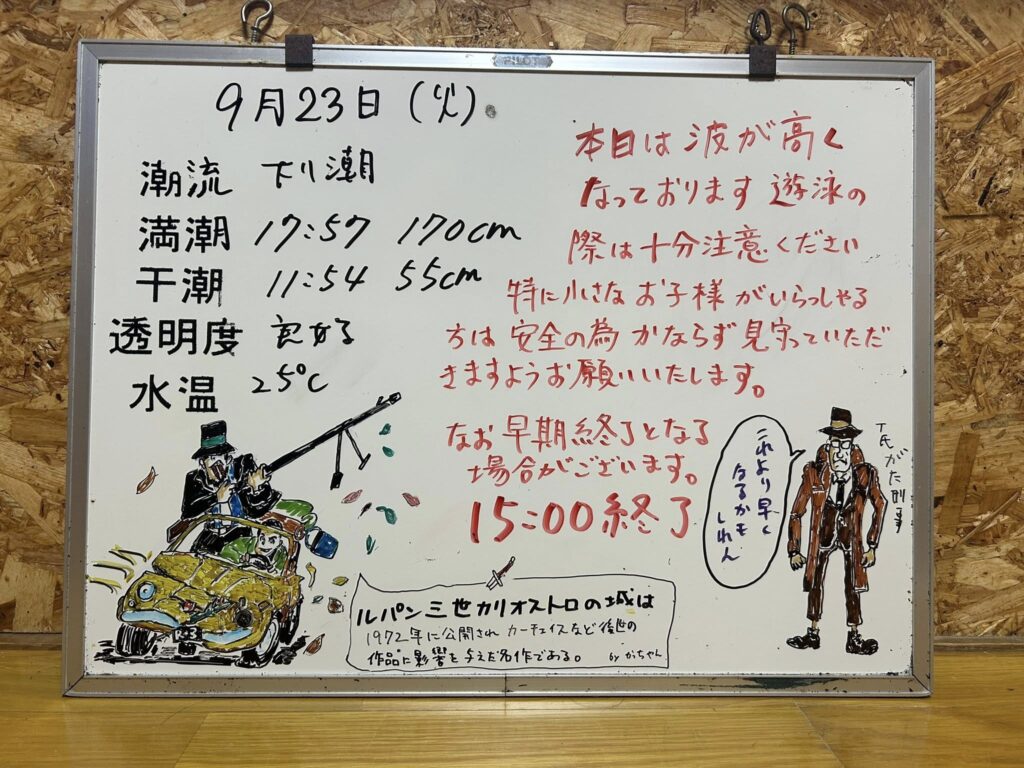 PILOT
9月23日(火)
潮流 下り潮
満潮 17:57 170cm
干潮 11:54 55cm
透明度 良好
水温 25℃
本日は波が高く
なっております 遊泳の
際は十分注意ください
特に小さなお子様がいらっしゃる
方は安全の為かならず見守っていただ
きますようお願いいたします。
なお早期終了となる
場合がございます。
15:00終了
これより早く
なるかも
しれん
ルパン三世カリオストロの城は
1972年に公開され カーチェイスなど後世の
作品に影響を与えた名作である。 by かちゃん